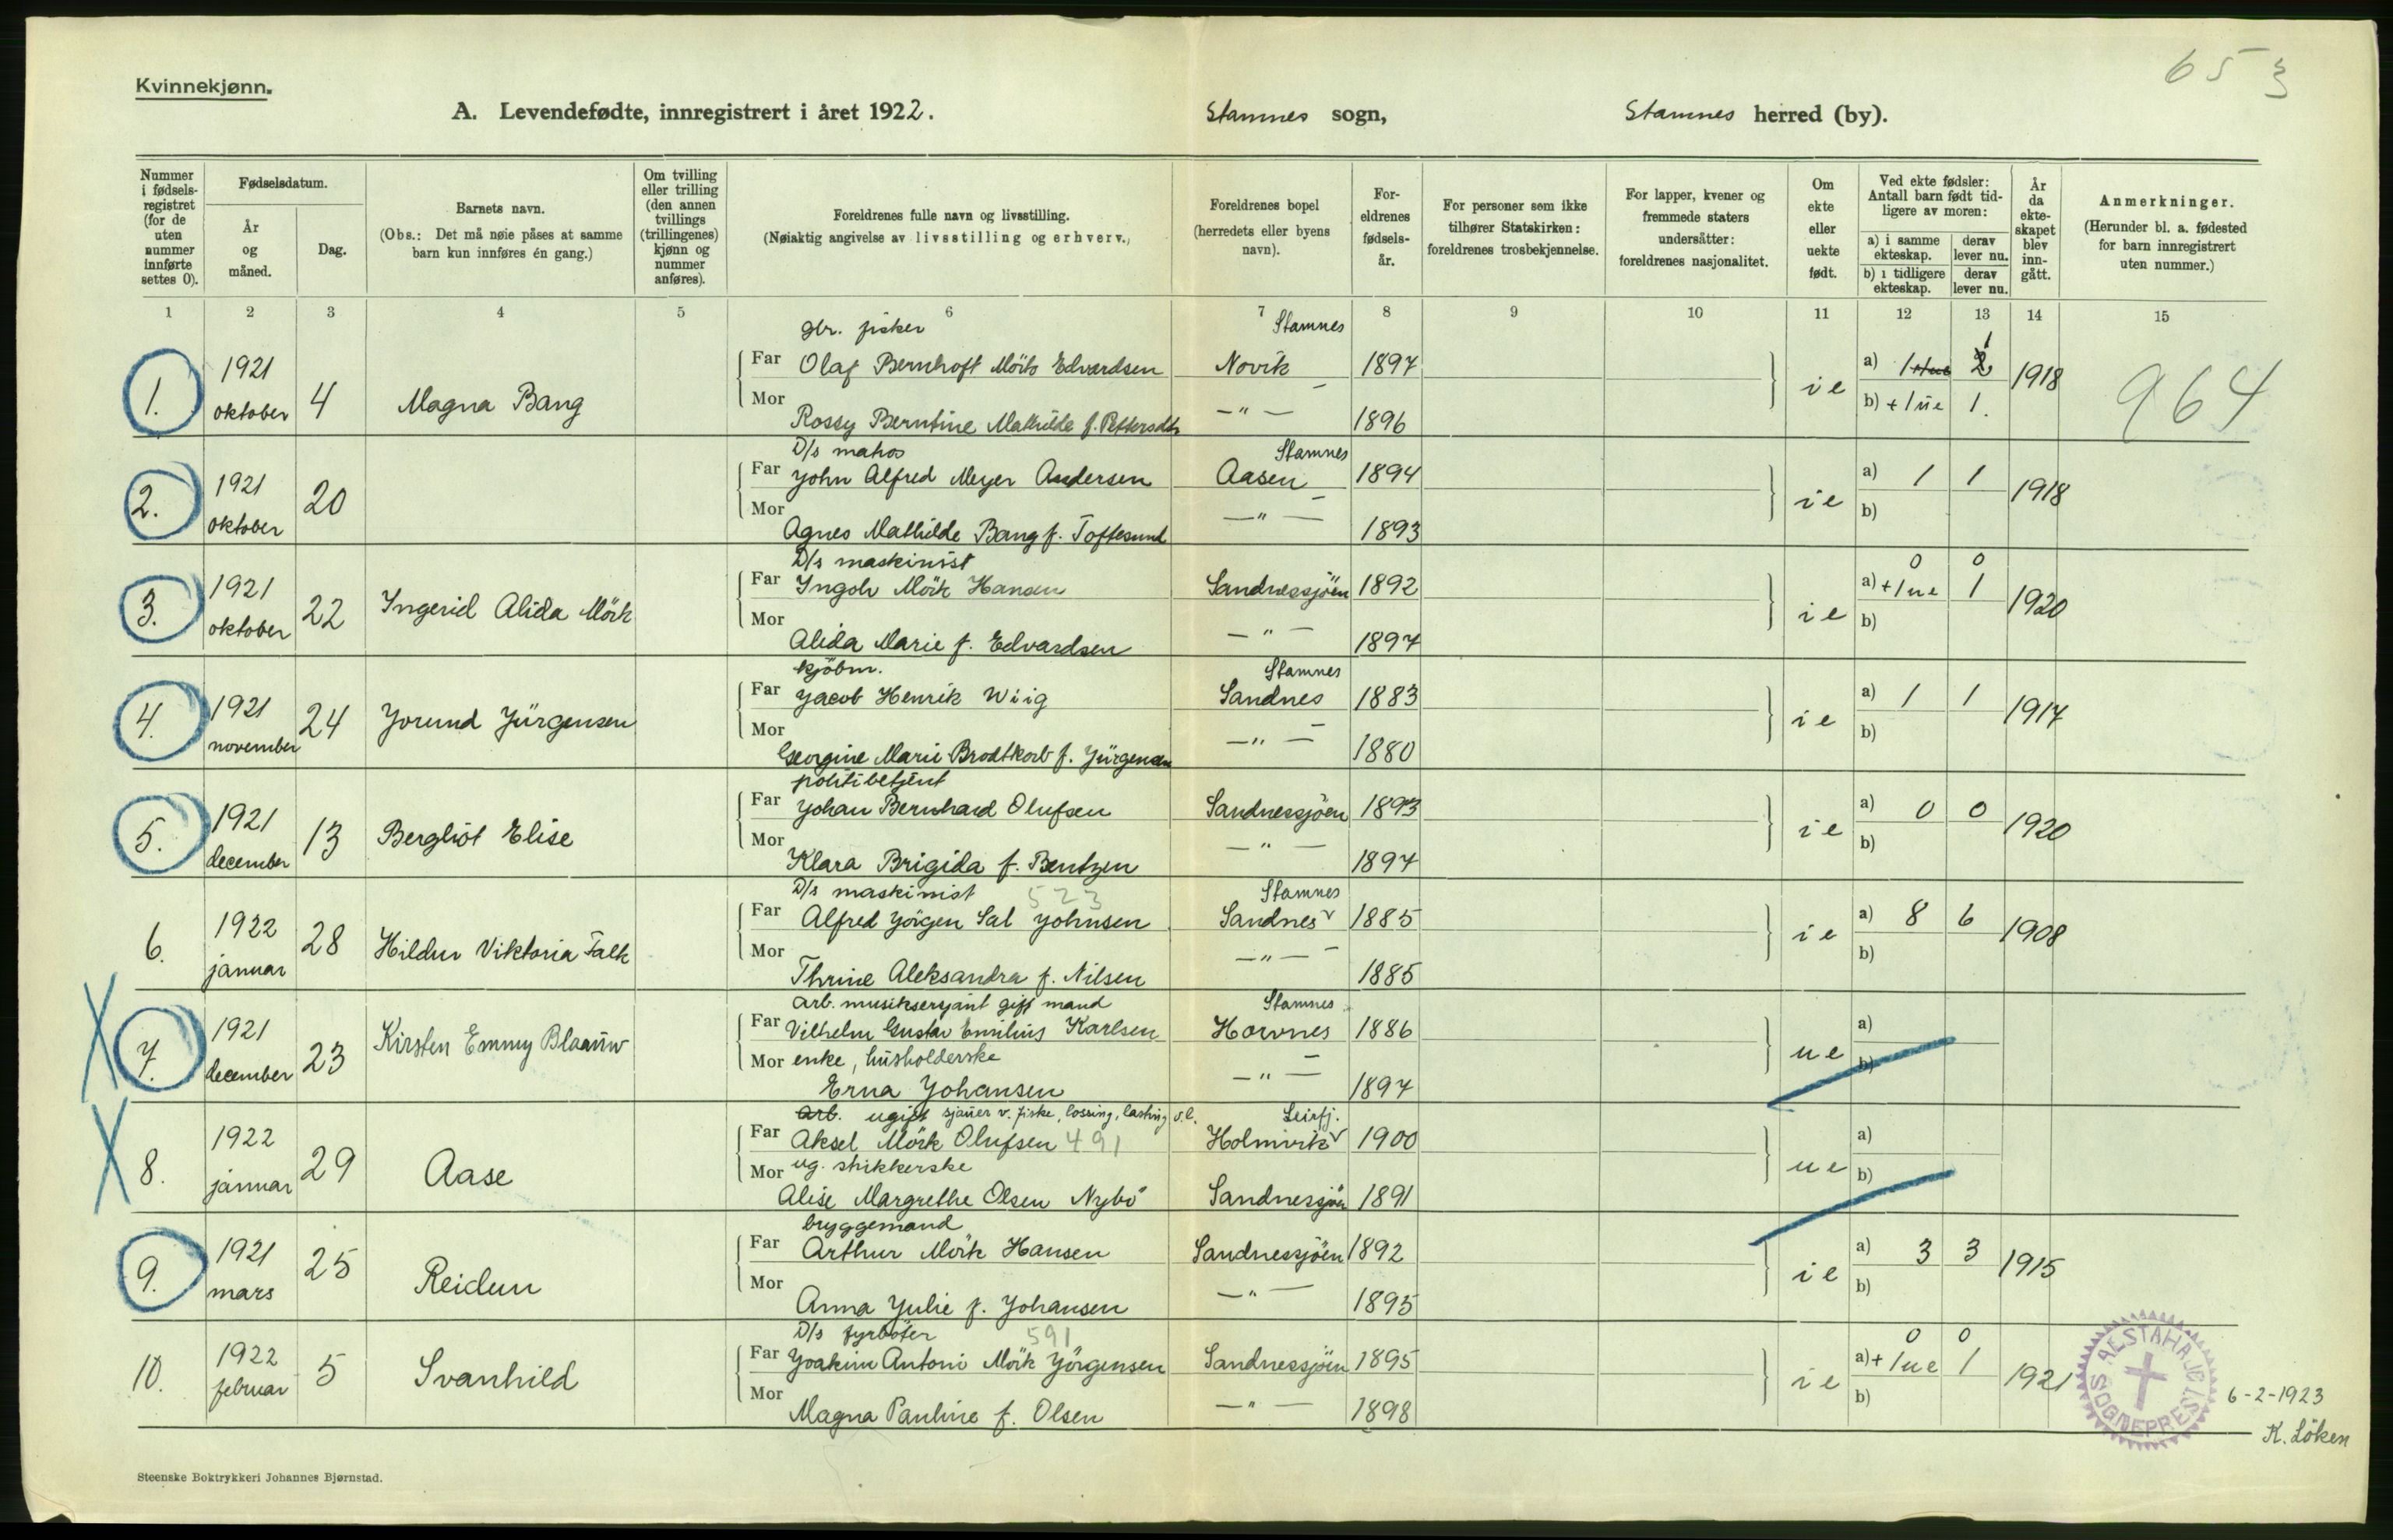 65 3
Kvinnekjønn.
A. Levendefødte, innregistrert i året 1922. Stamnes sogn, Stamnes herred (by).
Nummer i fødsels-registret (for de uten nummer innførte settes 0).
Fødselsdatum.
År og måned.
Dag.
Barnets navn.
(Obs.: Det må nøie påses at samme barn kun innføres én gang.)
Om tvilling eller trilling (den annen tvillings (trillingenes) kjønn og nummer anføres).
Foreldrenes fulle navn og livsstilling.
(Nøiaktig angivelse av livsstilling og erhverv.)
Foreldrenes bopel (herredets eller byens navn).
For-eldrenes fødsels-år.
For personer som ikke tilhører Statskirken: foreldrenes trosbekjennelse.
For lapper, kvener og fremmede staters undersåtter: foreldrenes nasjonalitet.
Om ekte eller uekte født.
Ved ekte fødsler: Antall barn født tid-ligere av moren:
a) i samme ekteskap. derav lever nu.
b) i tidligere ekteskap. derav lever nu.
År da ekte-skapet blev inn-gått.
Anmerkninger.
(Herunder bl. a. fødested for barn innregistrert uten nummer.)
1 2 3 4 5 6 7 8 9 10 11 12 13 14 15
gbr. fisker Stamnes 1
1921 Far Olaf Bernhoft Mörk Edvardsen Novik 1897 a) 1 2
1. oktober 4 Magna Bang ie 1918 964
Mor Rossy Berntine Mathilde f. Pettersdtr —"— 1896 b) + 1 ue 1.
D/s matros Stamnes
1921 Far John Alfred Meyer Andersen Aasen 1894 a) 1 1
2. oktober 20 ie 1918
Mor Agnes Mathilde Bang f. Toftesund —"— 1893 b)
D/s maskinist 0 0
1921 Far Ingolv Mörk Hansen Sandnessjöen 1892 a) + 1 ue 1
3. oktober 22 Ingerid Alida Mörk ie 1920
Mor Alida Marie f. Edvardsen —"— 1897 b)
kjöbm. Stamnes
1921 Far Jacob Henrik Wiig Sandnes 1883 a) 1 1
4. november 24 Jorund Jürgensen ie 1917
Mor Georgine Marie Brodtkorb f. Jürgensen —"— 1880 b)
politibetjent
1921 Far Johan Bernhard Olufsen Sandnessjöen 1893 a) 0 0
5. december 13 Bergliot Elise ie 1920
Mor Klara Brigida f. Bentzen —"— 1897 b)
D/s maskinist 523 Stamnes
1922 Far Alfred Jörgen Sal Johnsen Sandnes v 1885 a) 8 6
6. januar 28 Hildur Viktoria Falk ie 1908
Mor Thrine Aleksandra f. Nilsen —"— 1885 b)
arb. musiksersjant gift mand Stamnes
1921 Far Vilhelm Gustav Emilius Karlsen Horvnes 1886 a)
7. december 23 Kirsten Emmy Blaauw ue
Mor enke, husholderske
Erna Johansen —"— 1897 b)
Arb. ugift sjauer v. fiske, lossing, lasting o.l. Leirfj.
1922 Far Aksel Mörk Olufsen 491 Holmvik v 1900 a)
8. januar 29 Aase ue
Mor ug. strikkerske
Alise Margrethe Olsen Nybö Sandnessjöen 1891 b)
bryggemand
1921 Far Arthur Mörk Hansen Sandnessjöen 1892 a) 3 3
9. mars 25 Reidun ie 1915
Mor Anna Julie f. Johansen —"— 1895 b)
D/s fyrböter 591 0 0
1922 Far Joakim Antoni Mörk Jörgensen Sandnessjöen 1895 a) + 1 ue 1
10. februar 5 Svanhild ie 1921
Mor Magna Pauline f. Olsen —"— 1898 b)
ALSTAHAUG SOGNEPREST
6-2-1923
K. Löken
Steenske Boktrykkeri Johannes Bjørnstad.